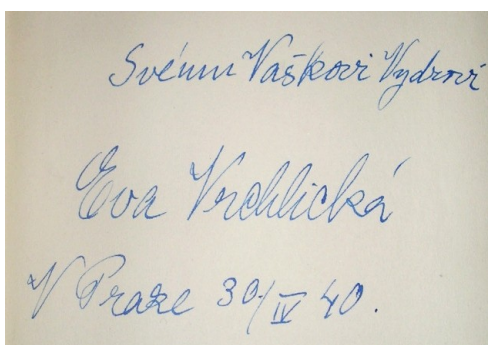 Svému Vaškovi Vydrovi
Eva Vrchlická
V Praze 30/IV 40.